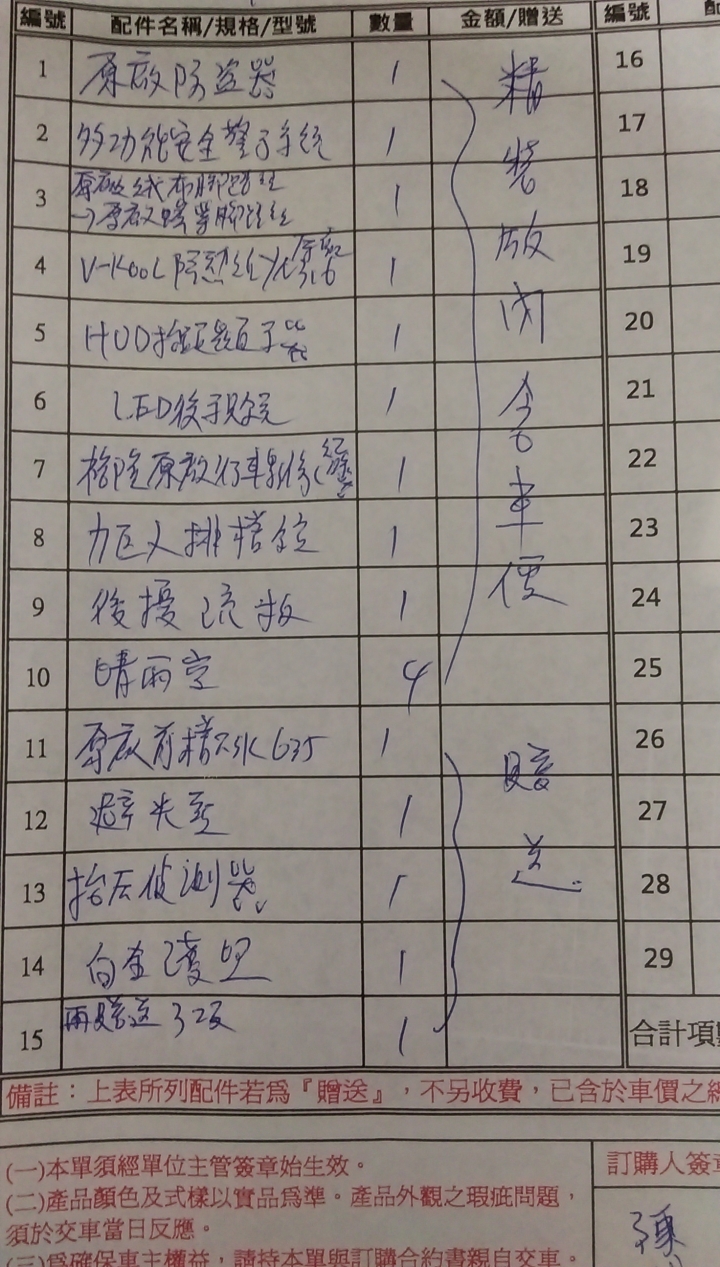 編號 配件名稱/規格/型號 數量 金額/贈送 編號
1 原廠防盜器 1 16
2 多功能安全警示系統 1 17
3 原廠絨布腳踏墊
→原廠 腳踏墊 1 18
4 V-KOOL隔熱紙 1 19
5 HUD抬頭顯示器 1 20
6 LED後視鏡 1 21
7 原廠行車 1 22
8 排檔鎖 1 23
9 後擾流板 1 24
10 晴雨窗 4 25
精裝版內含車價
11 原廠前檔 635 1 26
12 避光墊 1 27
13 胎压偵測器 1 28
14 白金護照 1 29
15 再贈送3項 1 合計項
贈送
備註：上表所列配件若為『贈送』，不另收費，已含於車價之
(一)本單須經單位主管簽章始生效。 訂購人簽章
(二)產品顏色及式樣以實品為準。產品外觀之瑕疵問題，
須於交車當日反應。
(三)為確保車主權益，請持本單與訂購合約書親自交車。
陳